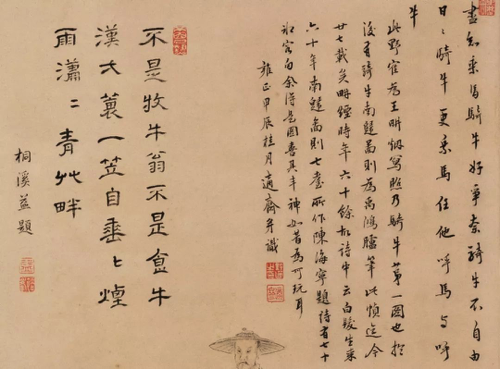 盡知乘馬騎牛好爭奈騎牛不自由
日〻騎牛更乘馬任他呼馬与呼
牛
此野宦為王畊烟寫照乃騎牛第一圖也於
後有騎牛南圖則為禹鴻臚筆以迄今
廿七載矣畊煙時年六十餘故詩中云白生來
六十年南圖則七耋所作陳海寧題詩有七十
客向余得是圖喜其牛神如昔為可玩耳
雍正甲辰桂月適齋并識
不是牧牛翁不是食牛
漢蓑一笠自垂〻煙
雨瀟〻青艸畔
桐溪益題